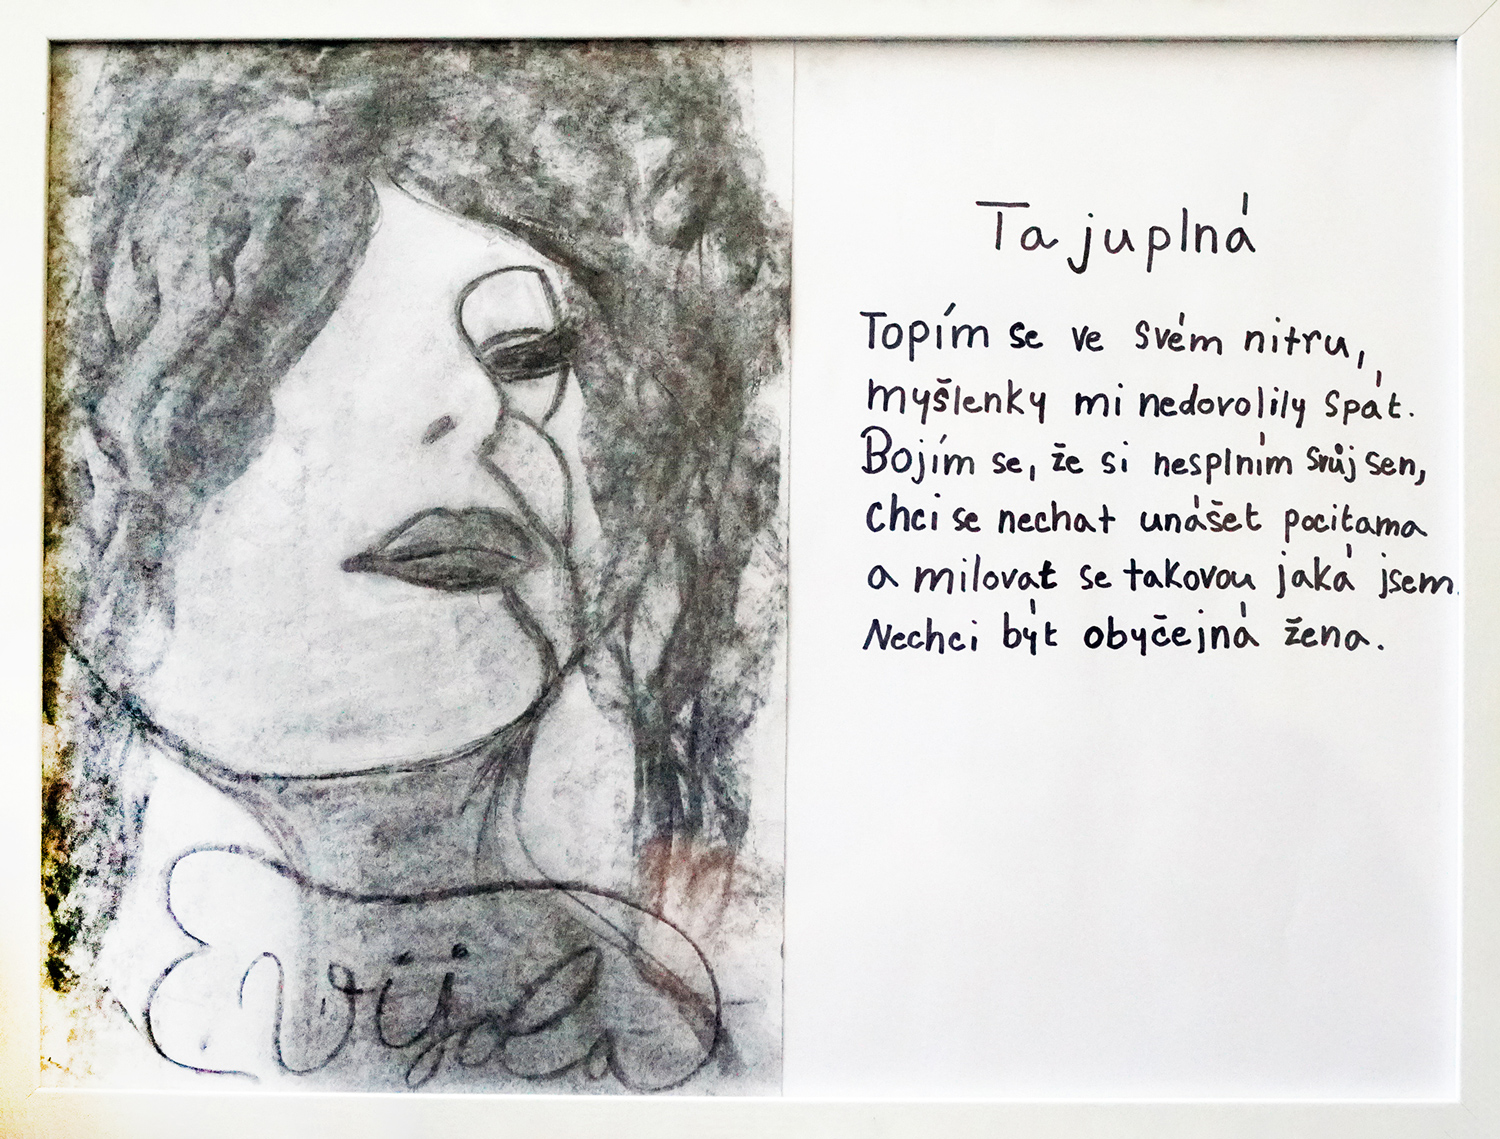 Tajuplná
Topím se ve svém nitru,
myšlenky mi nedovolily spát.
Bojím se, že si nesplním svůj sen,
Chci se nechat unášet pocitama
a milovat se takovou jaká jsem.
Nechci být obyčejná žena.